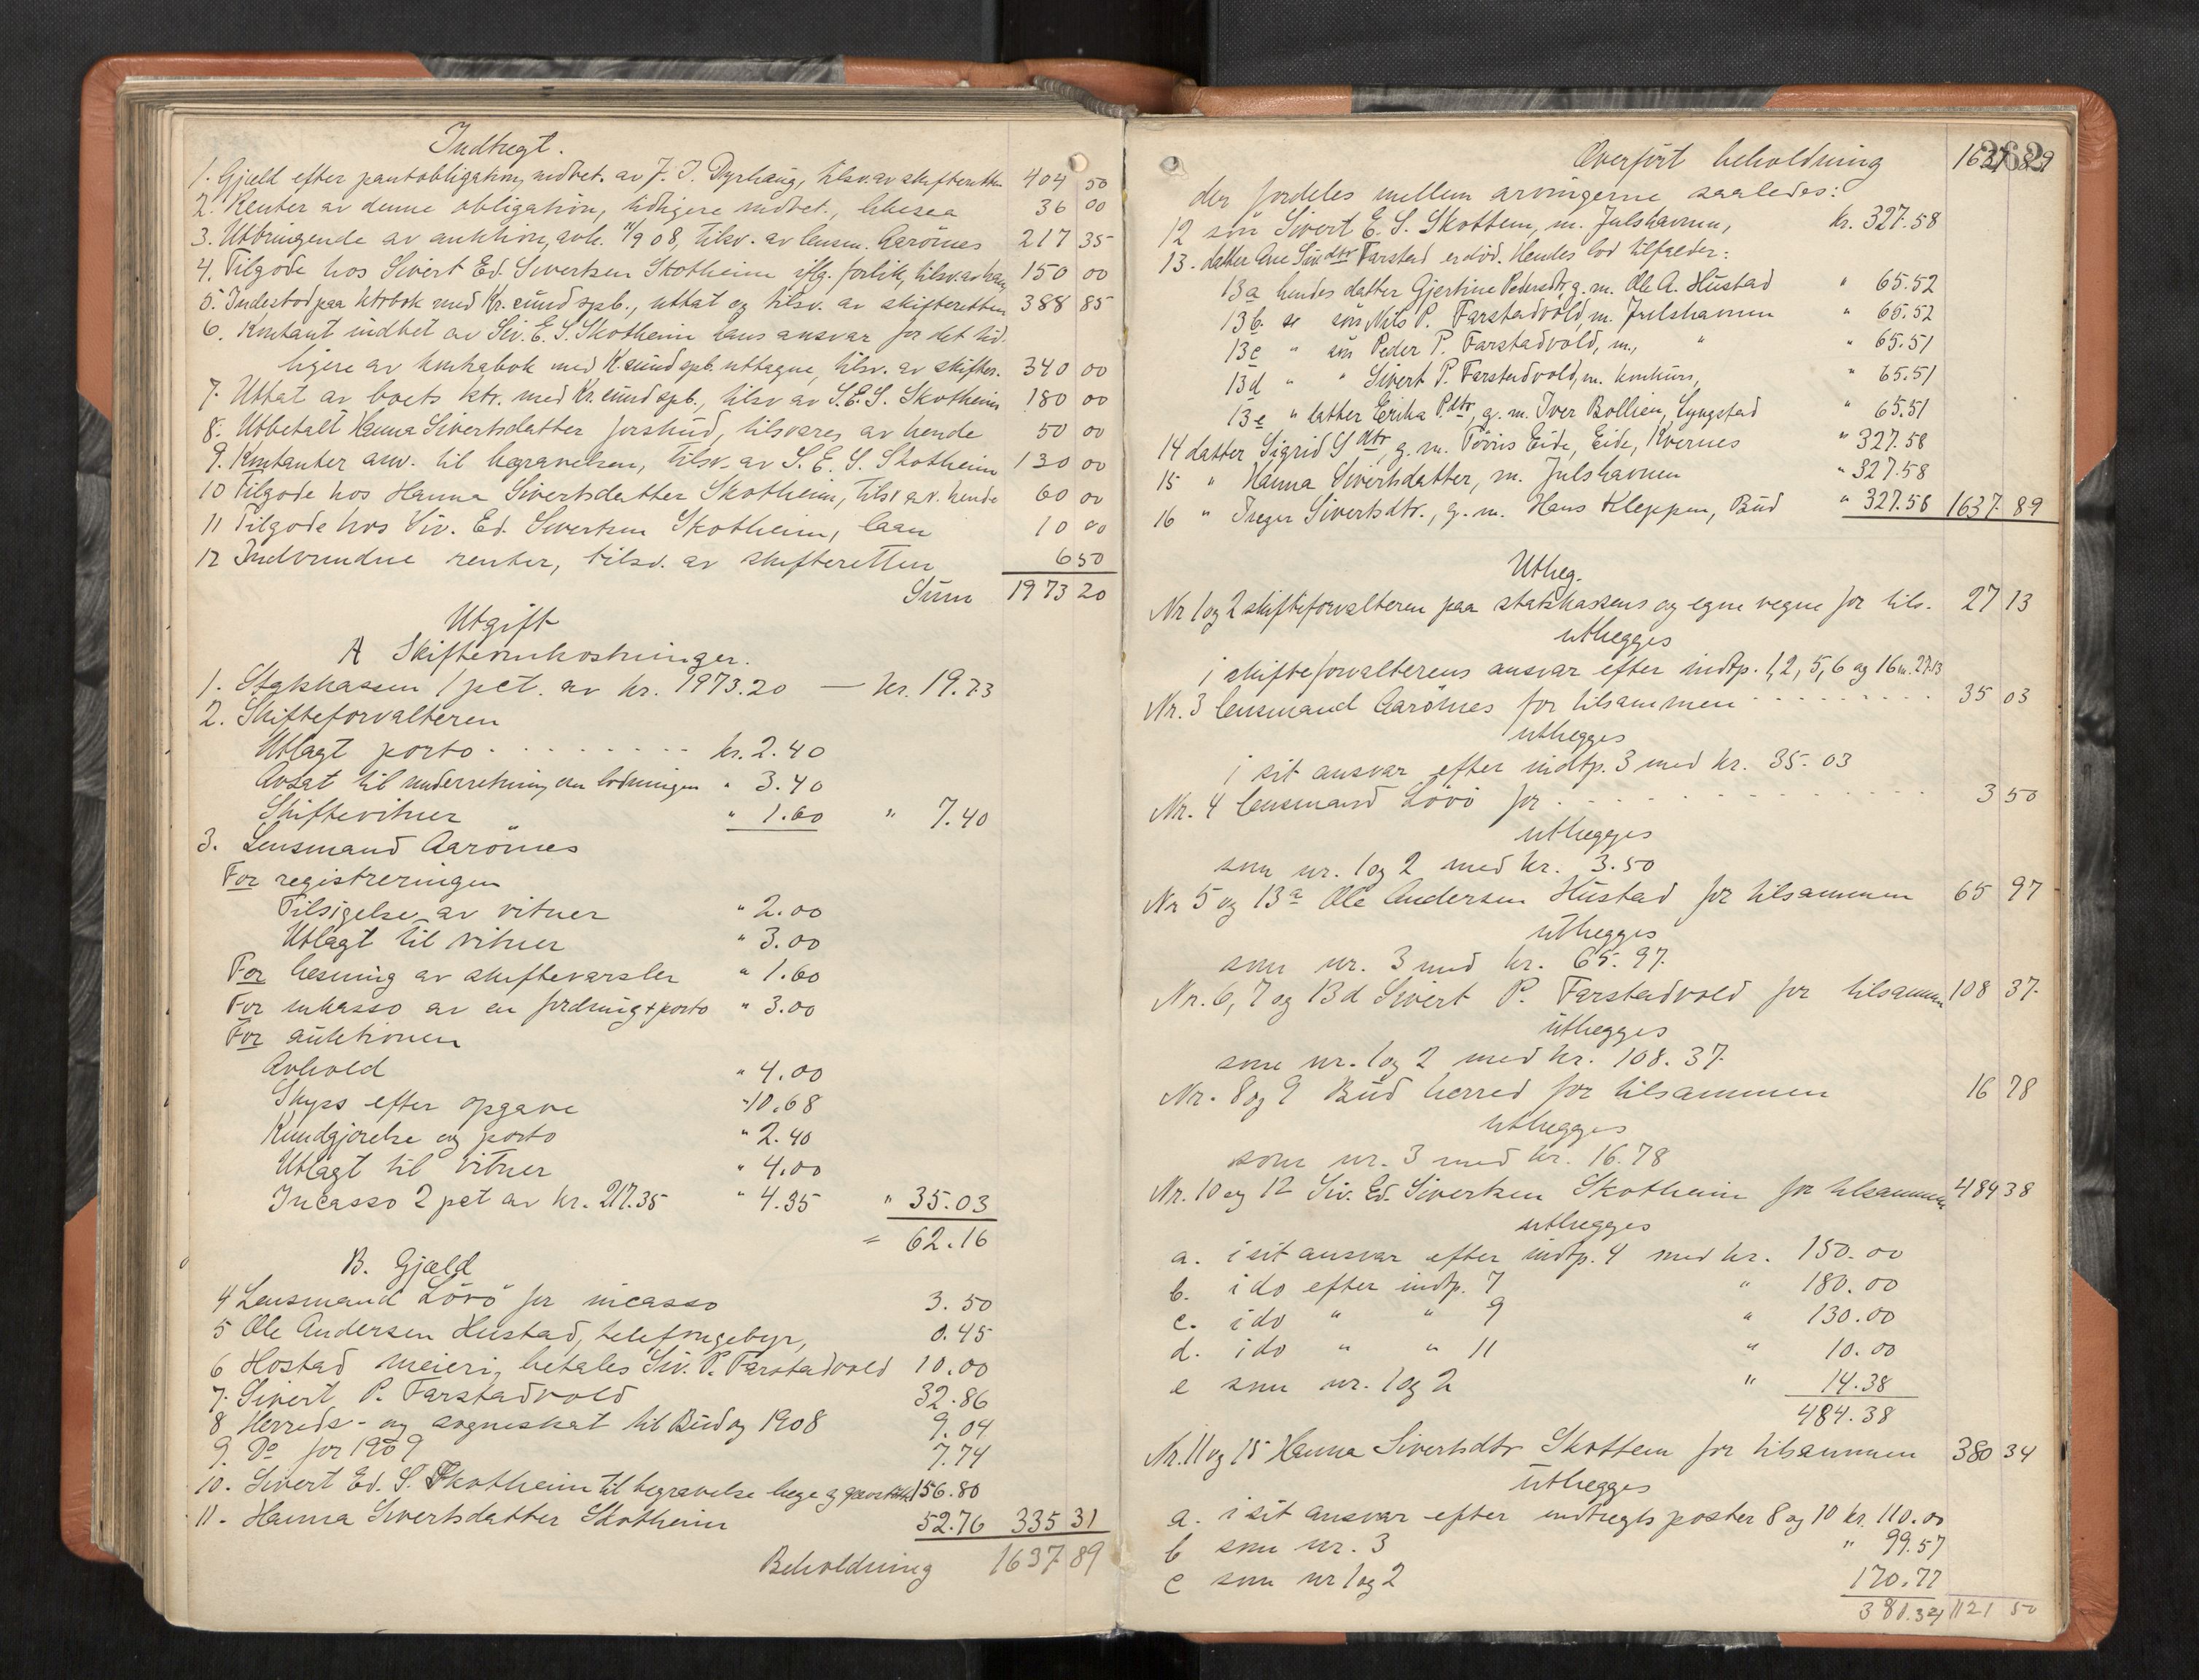 Indtægt.
1. Gjæld efter pantobligation, indbet. av J. J. Dyrhaug, tilsv. av skifteretten 404 50
2. Renter av denne obligation, tidligere indbet., likesaa 36 00
3. Utbringende av auktion, avh. 11/9 08, tilsv. av lensm. Aarönes 217 35
4. Tilgode hos Sivert Ed. Sivertsen Skotheim iflg. forlik, tilsv. av ham 150 00
5. Indestod paa ktrbok med Kr.sund spb., uttat og tilsv. av skifteretten 388 85
6. Kontant indbet av Siv. E. S. Skotheim hans ansvar for det tid.
ligere av kontrabok med K.sund spb. uttagne, tilsv. av skifter. 340 00
7. Uttat av boets ktr. med Kr.sund spb., tilsv av S. E. S. Skotheim 180 00
8. Utbetalt Hanna Sivertsdatter forskud, tilsvares av hende 50 00
9. Kontanter anv. til begravelsen, tilsv. av S. E. S. Skotheim 130 00
10 Tilgode hos Hanna Sivertsdatter Skotheim, tilsv av. hende 60 00
11 Tilgode hos Siv. Ed. Sivertsen Skotheim, laan 10 00
12 Indvundne renter, tilsv. av skifteretten 6 50
Sum 1973 20
Utgift
A Skifteomkostninger.
1. Statskassen 1 pct. av kr. 1973.20 — kr. 19.73
2. Skifteforvalteren
Utlagt porto . . . . . . . . kr. 2.40
Avsat til underretning om lodningen " 3.40
Skiftevitner " 1.60 " 7.40
3. Lensmand Aarönes
For registreringen
Tilsigelse av vitner " 2.00
Utlagt til vitner " 3.00
For læsning av skiftevarsler " 1.60
For inkasso av en fordring + porto " 3.00
For auktionen
Avhold " 4.00
Skyss efter opgave " 10.68
Kundgjørelse og porto " 2.40
Utlagt til vitner " 4.00
Incasso 2 pct av kr. 217.35 " 4.35 " 35.03
= 62.16
B. Gjæld
4 Lensmand Lövö for incasso 3. 50
5 Ole Andersen Hustad, telefongebyr, 0.45
6 Hostad meieri, betales Siv. P. Farstadvold 10.00
7. Sivert P. Farstadvold 32.86
8 Herreds- og sogneskat til Bud og 1908 9.04
9. Do for 1909 7.74
10. Sivert Ed. S. Skotheim til begravelse læge og gravstøtte 156.80
11. Hanna Sivertsdatter Skotheim 52.76 335 31
Beholdning 1637 89
262
Overført beholdning 1637 89
der fordeles mellem arvingerne saaledes:
12 søn Sivert E. S. Skottem, m. Julshavnen, kr. 327.58
13. datter Ane Sivdtr Farstad er død. Hendes lod tilfalder:
13a hendes datter Gjertine Pedersdtr g. m. Ole A. Hustad " 65.52
13b. " søn Nils P. Farstadvold, m. Julshavnen " 65.52
13c " søn Peder P. Farstadvold, m., " " 65.51
13d " " Sivert P. Farstadvold, m. konkurs, " 65.51
13e " datter Erika Pdtr, g. m. Iver Bollien, Lyngstad " 65.51
14 datter Sigrid Sdtr, g. m. Tövris Eide, Eide, Kvernes " 327.58
15 " Hanna Sivertsdatter, m. Julshavnen " 327.58
16 " Inger Sivertsdtr., g. m. Hans Kleppen, Bud " 327.58 1637 89
Utlæg.
Nr 1 og 2 skifteforvalteren paa statskassens og egne vegne for tils. 27 13
utlægges
i skifteforvalterens ansvar efter indtp. 1, 2, 5, 6 og 16 m. 27.13
Nr. 3 lensmand Aarönes for tilsammen . . . . . . . . . 35 03
utlægges
i sit ansvar efter indtp. 3 med kr. 35.03
Nr. 4 lensmand Lövö for . . . . . . . . . . . . . . . 3 50
utlægges
som nr. 1 og 2 med kr. 3.50
Nr 5 og 13a Ole Andersen Hustad for tilsammen 65 97
utlægges
som nr. 3 med kr. 65.97.
Nr. 6, 7 og 13d Sivert P. Farstadvold for tilsammen 108 37.
utlægges
som nr. 1 og 2 med kr. 108.37.
Nr. 8 og 9 Bud herred for tilsammen 16 78
utlægges
som nr. 3 med kr. 16.78
Nr. 10 og 12 Siv. Ed. Sivertsen Skotheim for tilsammen 484 38
utlægges
a. i sit ansvar efter indtp. 4 med kr. 150.00
b. i do efter indtp. 7 " 180.00
c. i do " " 9 " 130.00
d. i do " " 11 " 10.00
e som nr. 1 og 2 " 14.38
484.38
Nr. 11 og 15 Hanna Sivertsdtr Skottem for tilsammen 380 34
utlægges
a. i sit ansvar efter indtægts poster 8 og 10 kr. 110.00
b som nr. 3 " 99.57
c som nr 1 og 2 170.77
381.34 1121 50